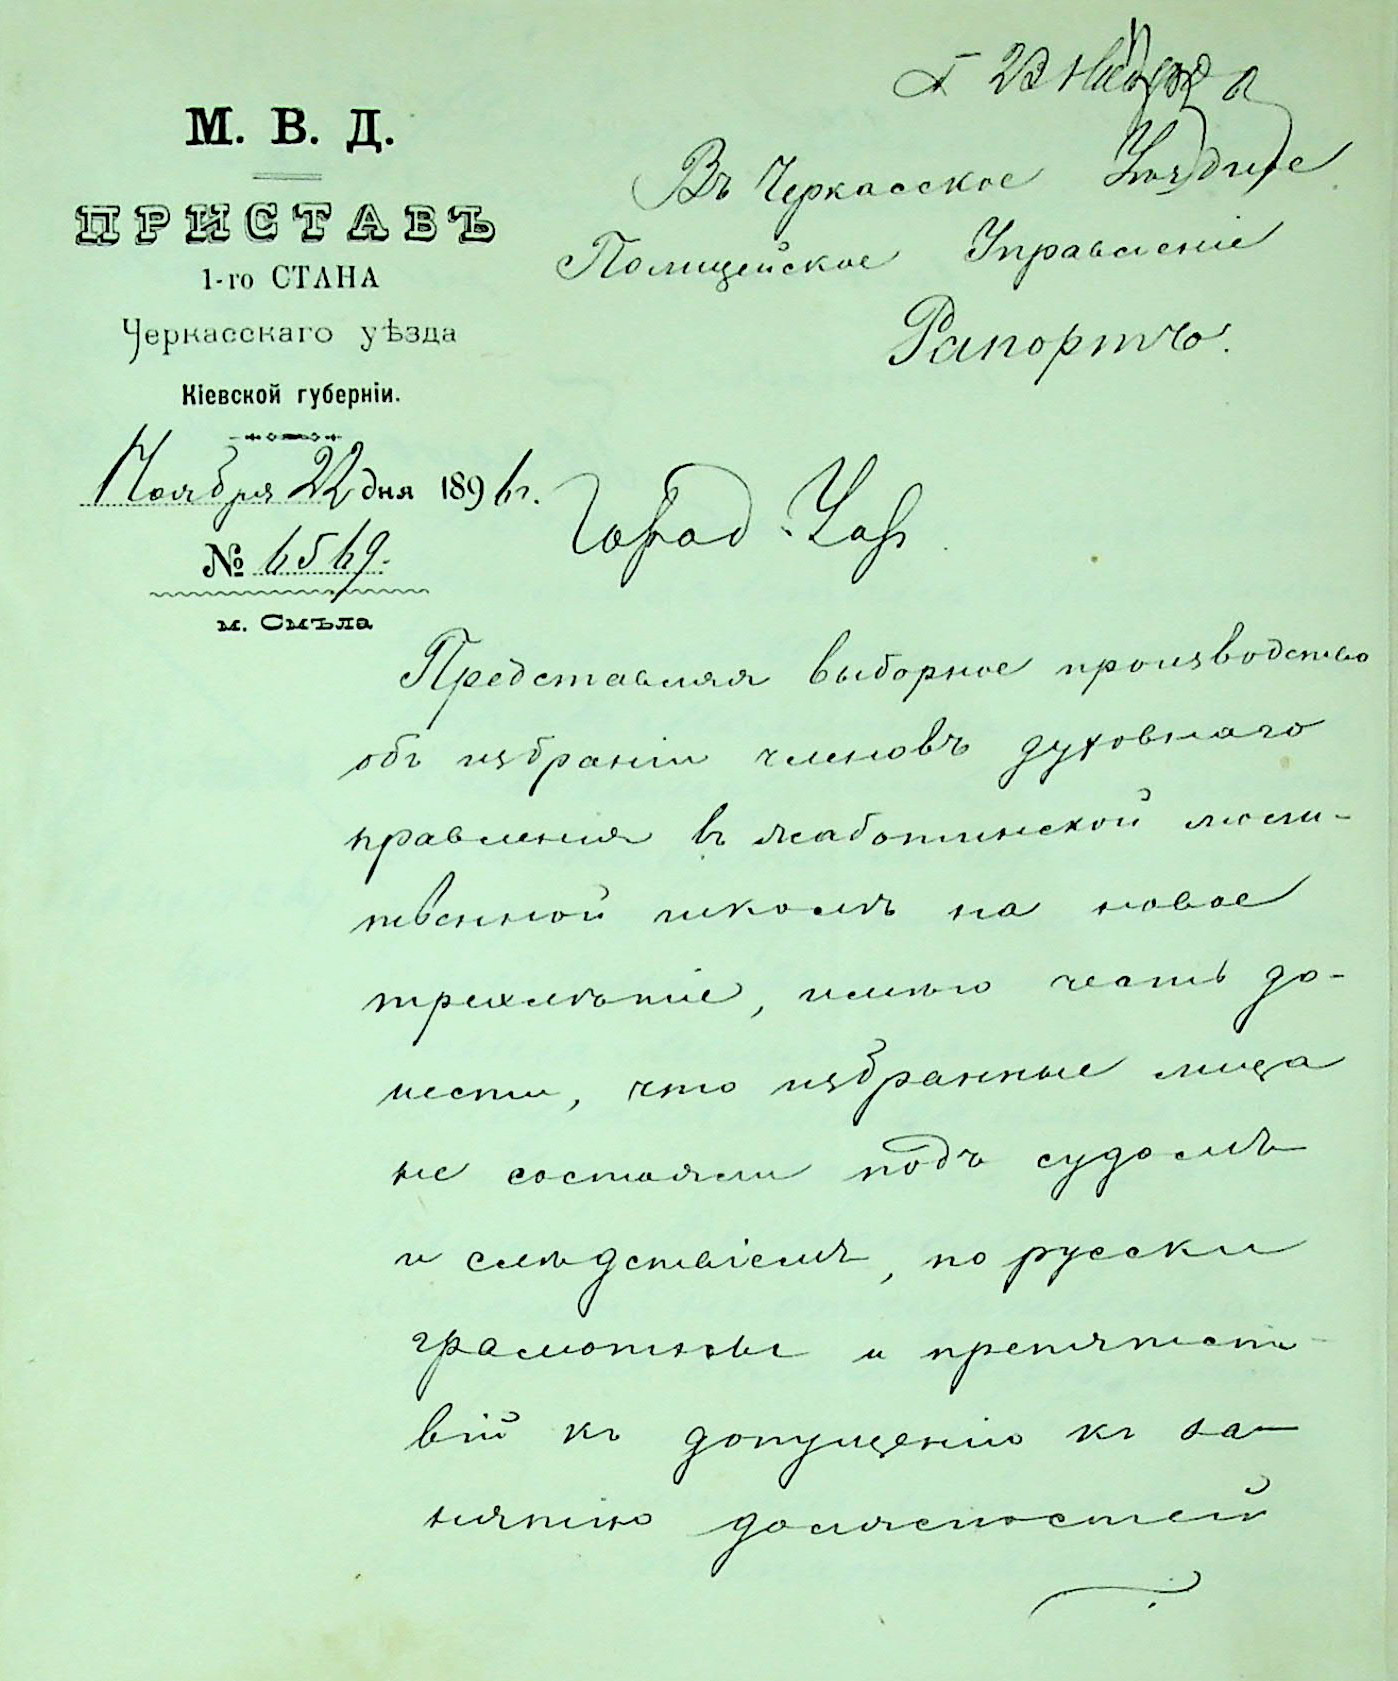 23 ноября
М. В. Д.
ПРИСТАВЪ
1-го СТАНА
Черкасскаго уѣзда
Кіевской губерніи.
Ноября 22 дня 1896 г.
№ 6569.
м. Смѣла
Въ Черкасское Уѣздное
Полицейское Управленіе
Рапортъ.
Представляя выборное производство
объ избраніи членовъ духовнаго
правленія въ жаботинской моли-
твенной школѣ на новое
трехлѣтіе, имѣю честь до-
нести, что избранные лица
не состояли подъ судомъ
и слѣдствіемъ, по русски
грамотны и препятст-
вій къ допущенію къ за-
нятію должностей